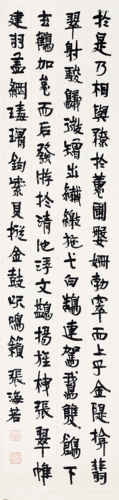 於是乃相與獠於蕙圃媻姍勃窣而上乎金隄揜翡
翠射鵔鸃微矰出纖繳施弋白鵠連駕鵞雙鶬下
玄鶴加怠而后發游於清池浮文鷁揚旌栧張翠帷
建羽蓋網瑇瑁鉤紫貝摐金鼓吹鳴籟 張海若